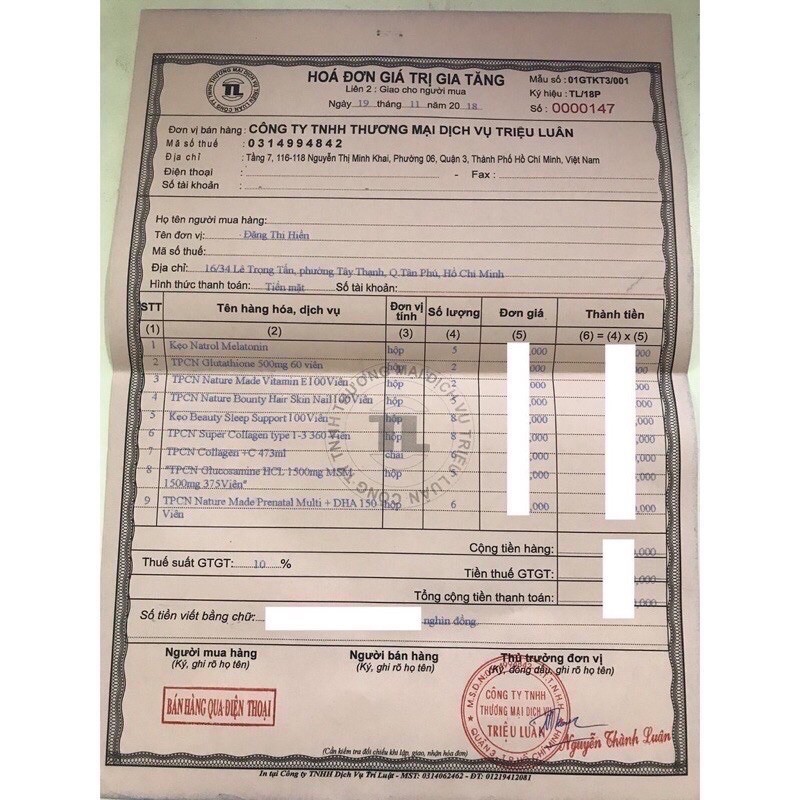 HOÁ ĐƠN GIÁ TRỊ GIA TĂNG
Liên 2: Giao cho người mua
Ngày 19 tháng 11 năm 2018
Mẫu số: 01GTKT3/001
Ký hiệu: TL/18P
Số: 0000147
Đơn vị bán hàng: CÔNG TY TNHH THƯƠNG MẠI DỊCH VỤ TRIỆU LUÂN
Mã số thuế : 0314994842
Địa chỉ : Tầng 7, 116-118 Nguyễn Thị Minh Khai, Phường 06, Quận 3, Thành Phố Hồ Chí Minh, Việt Nam
Điện thoại : - Fax :
Số tài khoản :
Họ tên người mua hàng:
Tên đơn vị: Đặng Thị Hiền
Mã số thuế:
Địa chỉ: 16/34 Lê Trọng Tấn, phường Tây Thạnh, Q.Tân Phú, Hồ Chí Minh
Hình thức thanh toán: Tiền mặt Số tài khoản:
STT Tên hàng hóa, dịch vụ Đơn vị tính Số lượng Đơn giá Thành tiền
(1) (2) (3) (4) (5) (6) = (4) x (5)
1 Kẹo Natrol Melatonin hộp 5 ,000 ,000
2 TPCN Glutathione 500mg 60 viên hộp 2 ,000 ,000
3 TPCN Nature Made Vitamin E100Viên hộp 2 ,000 ,000
4 TPCN Nature Bounty Hair Skin Nail 100Viên hộp 2 ,000 ,000
5 Kẹo Beauty Sleep Support 100Viên hộp 8 ,000 ,000
6 TPCN Super Collagen type 1-3 360 Viên hộp 8 ,000 ,000
7 TPCN Collagen +C 473ml chai ,000 ,000
8 "TPCN Glucosamine HCL 1500mg MSM hộp ,000 ,000
1500mg 375Viên"
9 TPCN Nature Made Prenatal Multi + DHA 150 hộp 6 ,000 ,000
Viên
Cộng tiền hàng: ,000
Thuế suất GTGT: 10 % Tiền thuế GTGT: ,000
Tổng cộng tiền thanh toán: ,000
Số tiền viết bằng chữ: nghìn đồng.
Người mua hàng Người bán hàng Thủ trưởng đơn vị
(Ký, ghi rõ họ tên) (Ký, ghi rõ họ tên) (Ký, đóng dấu, ghi rõ họ tên)
BÁN HÀNG QUA ĐIỆN THOẠI
CÔNG TY TNHH
THƯƠNG MẠI DỊCH VỤ
TRIỆU LUÂN
Nguyễn Thành Luân
(Cần kiểm tra đối chiếu khi lập, giao, nhận hóa đơn)
In tại Công ty TNHH Dịch Vụ Trí Luật - MST: 0314062462 - ĐT: 01219412081
TL
CÔNG TY TNHH THƯƠNG MẠI DỊCH VỤ TRIỆU LUÂN